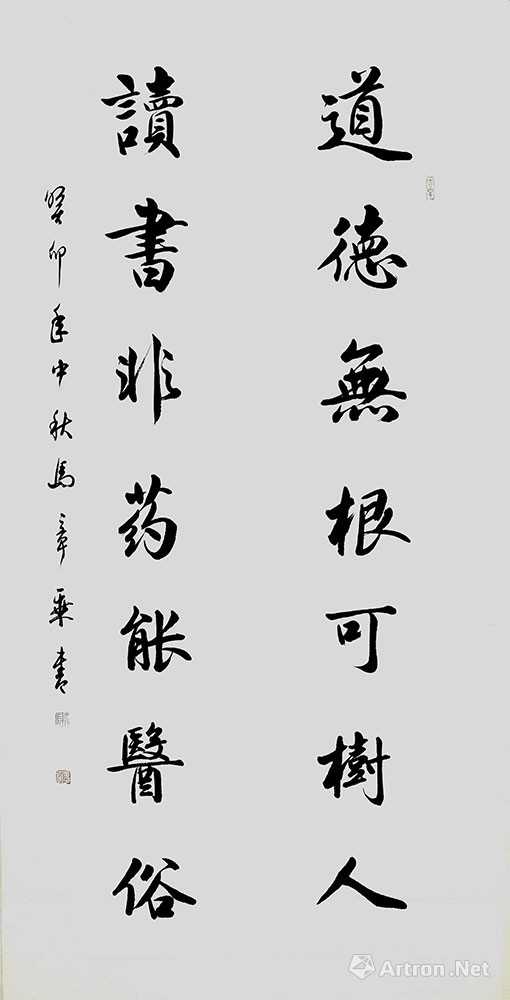 道德無根可樹人
讀書非药能醫俗
癸卯年中秋馬章乘書
Artron.Net